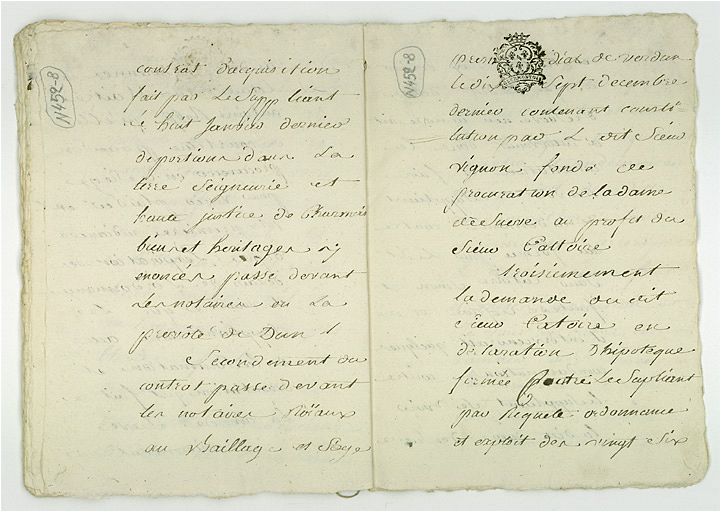 N452-8
contrat d'acquisition
fait par Le Suppliant
Le huit Janvier dernier
de portions dans La
terre Seigneurie et
haute justice de Charmois
biens et heritages y
enoncez passé devant
Les notaires en La
prevôté de Dun
Secondement du
contrat passé devant
les notaires Roïaux
au Baillage et Siege
N452-8
presidial de verdun
le dix Sept decembre
dernier contenant consti
tution par L dit Sieur
vignon fondé de
procuration de la dame
au profit du
Sieur Catoire
troisiemement
la demande du dit
Sieur Catoire en
declaration d'hipoteque
formée contre Le Supliant
par Requete ordonnance
et exploit des vingt six